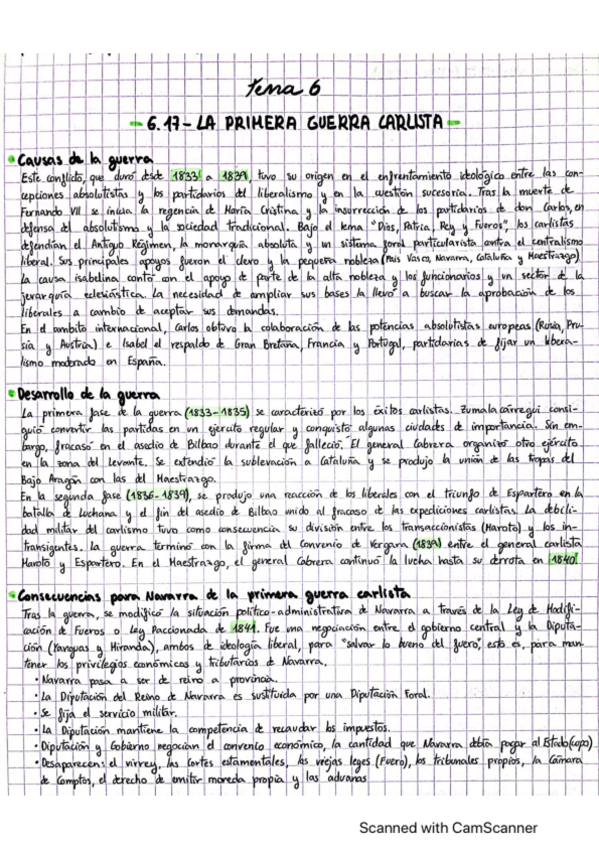 Tema 6
- 6.17 - LA PRIMERA GUERRA CARLISTA -
Causas de la guerra
Este conflicto, que duró desde 1833 a 1839, tuvo su origen en el enfrentamiento ideológico entre las con-
cepciones absolutistas y los partidarios del liberalismo y en la cuestión sucesoria. Tras la muerte de
Fernando VII se inicia la regencia de María Cristina y la insurrección de los partidarios de don Carlos, en
defensa del absolutismo y la sociedad tradicional. Bajo el lema "Dios, Patria, Rey y Fueros", los carlistas
defendían el Antiguo Régimen, la monarquía absoluta y un sistema foral particularista contra el centralismo
liberal. Sus principales apoyos fueron el clero y la pequeña nobleza (País Vasco, Navarra, Cataluña y Maestrazgo)
La causa isabelina contó con el apoyo de parte de la alta nobleza y los funcionarios y un sector de la
jerarquía eclesiástica. La necesidad de ampliar sus bases la llevó a buscar la aprobación de los
liberales a cambio de aceptar sus demandas.
En el ámbito internacional, Carlos obtuvo la colaboración de las potencias absolutistas europeas (Rusia, Pru-
sia y Austria) e Isabel el respaldo de Gran Bretaña, Francia y Portugal, partidarias de fijar un libera-
lismo moderado en España.
Desarrollo de la guerra
La primera fase de la guerra (1833-1835) se caracterizó por los éxitos carlistas. Zumalacárregui consi-
guió convertir las partidas en un ejército regular y conquistó algunas ciudades de importancia. Sin em-
bargo, fracasó en el asedio de Bilbao durante el que falleció. El general Cabrera organizó otro ejército
en la zona del Levante. Se extendió la sublevación a Cataluña y se produjo la unión de las tropas del
Bajo Aragón con las del Maestrazgo.
En la segunda fase (1836-1839), se produjo una reacción de los liberales con el triunfo de Espartero en la
batalla de Luchana y el fin del asedio de Bilbao unido al fracaso de las expediciones carlistas. La debili-
dad militar del carlismo tuvo como consecuencia su división entre los transaccionistas (Maroto) y los in-
transigentes. La guerra terminó con la firma del Convenio de Vergara (1839) entre el general carlista
Maroto y Espartero. En el Maestrazgo, el general Cabrera continuó la lucha hasta su derrota en 1840.
Consecuencias para Navarra de la primera guerra carlista
Tras la guerra, se modificó la situación político-administrativa de Navarra a través de la Ley de Modifi-
cación de Fueros o Ley Paccionada de 1841. Fue una negociación entre el gobierno central y la Diputa-
ción (Yanguas y Miranda), ambos de ideología liberal, para "salvar lo bueno del fuero", esto es, para man-
tener los privilegios económicos y tributarios de Navarra.
· Navarra pasa a ser de reino a provincia.
· La Diputación del Reino de Navarra es sustituida por una Diputación Foral.
· Se fija el servicio militar.
· La Diputación mantiene la competencia de recaudar los impuestos.
· Diputación y Gobierno negocian el convenio económico, la cantidad que Navarra debía pagar al Estado (cupo)
· Desaparecen: el virrey, las Cortes estamentales, las viejas leyes (Fuero), los tribunales propios, la Cámara
de Comptos, el derecho de emitir moneda propia y las aduanas
Scanned with CamScanner